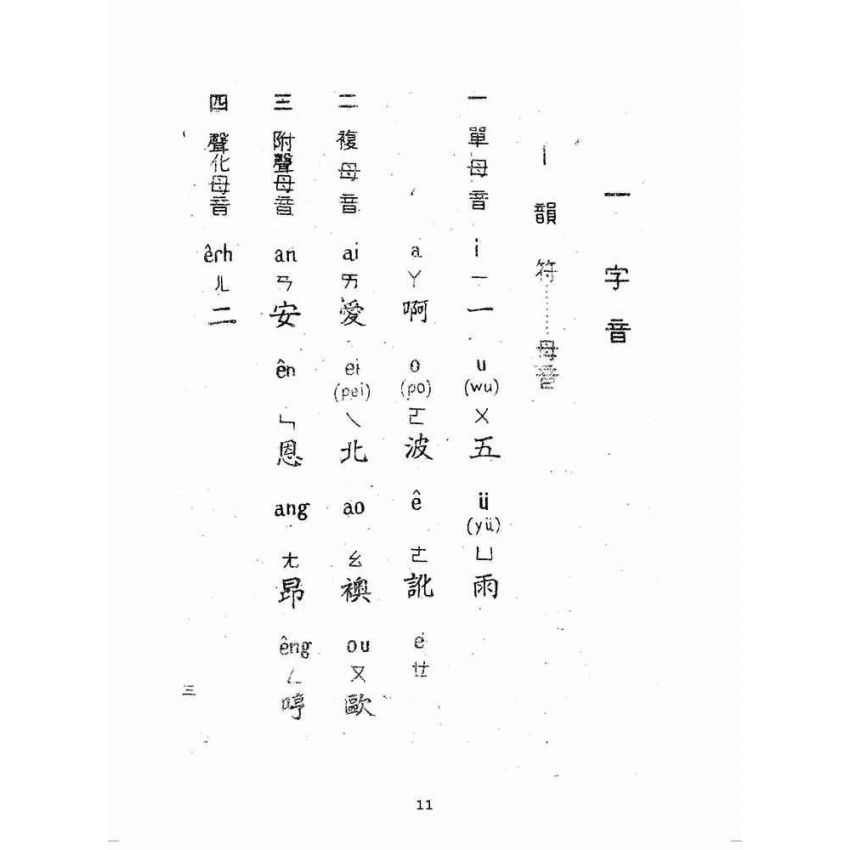 一 字音
i 韻符………母音
一 單母音 i ㄧ 一 u (wu) ㄨ 五 ü (yü) ㄩ 雨
a ㄚ 啊 o (po) ㄛ 波 ê ㄜ 訛 é ㄝ
二 複母音 ai ㄞ 愛 ei (pei) ㄟ 北 ao ㄠ 襖 ou ㄡ 歐
三 附聲母音 an ㄢ 安 ên ㄣ 恩 ang ㄤ 昂 êng ㄥ 哼
四 聲化母音 êrh ㄦ 二
三
11